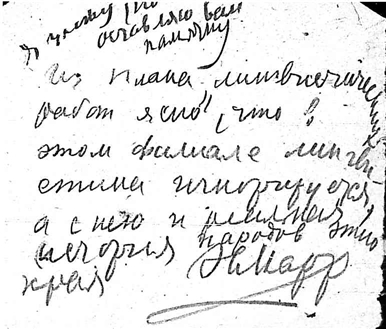 оставляю вам
памятку
Из плана лингвистических
работ ясно, что в
этом филиале лингви-
стика игнорируется,
а с нею и
история народов этого
края НМарр